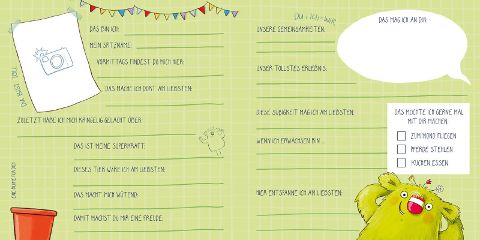 DAS BIN ICH:
MEIN SPITZNAME:
VORMITTAGS FINDEST DU MICH HIER:
DAS MACHE ICH DORT AM LIEBSTEN:
ZULETZT HABE ICH MICH KRINGELIG GELACHT ÜBER:
DAS IST MEINE SUPERKRAFT:
DIESES TIER WÄRE ICH AM LIEBSTEN:
DAS MACHT MICH WÜTEND:
DAMIT MACHST DU MIR EINE FREUDE:
DU BIST TOLL
DU + ICH = WIR
UNSERE GEMEINSAMKEITEN:
UNSER TOLLSTES ERLEBNIS:
DIESE SÜSSIGKEIT MAG ICH AM LIEBSTEN:
WENN ICH ERWACHSEN BIN ...
HIER ENTSPANNE ICH AM LIEBSTEN:
DAS MAG ICH AN DIR:
DAS MÖCHTE ICH GERNE MAL
MIT DIR MACHEN:
ZUM MOND FLIEGEN
PFERDE STEHLEN
KUCHEN ESSEN